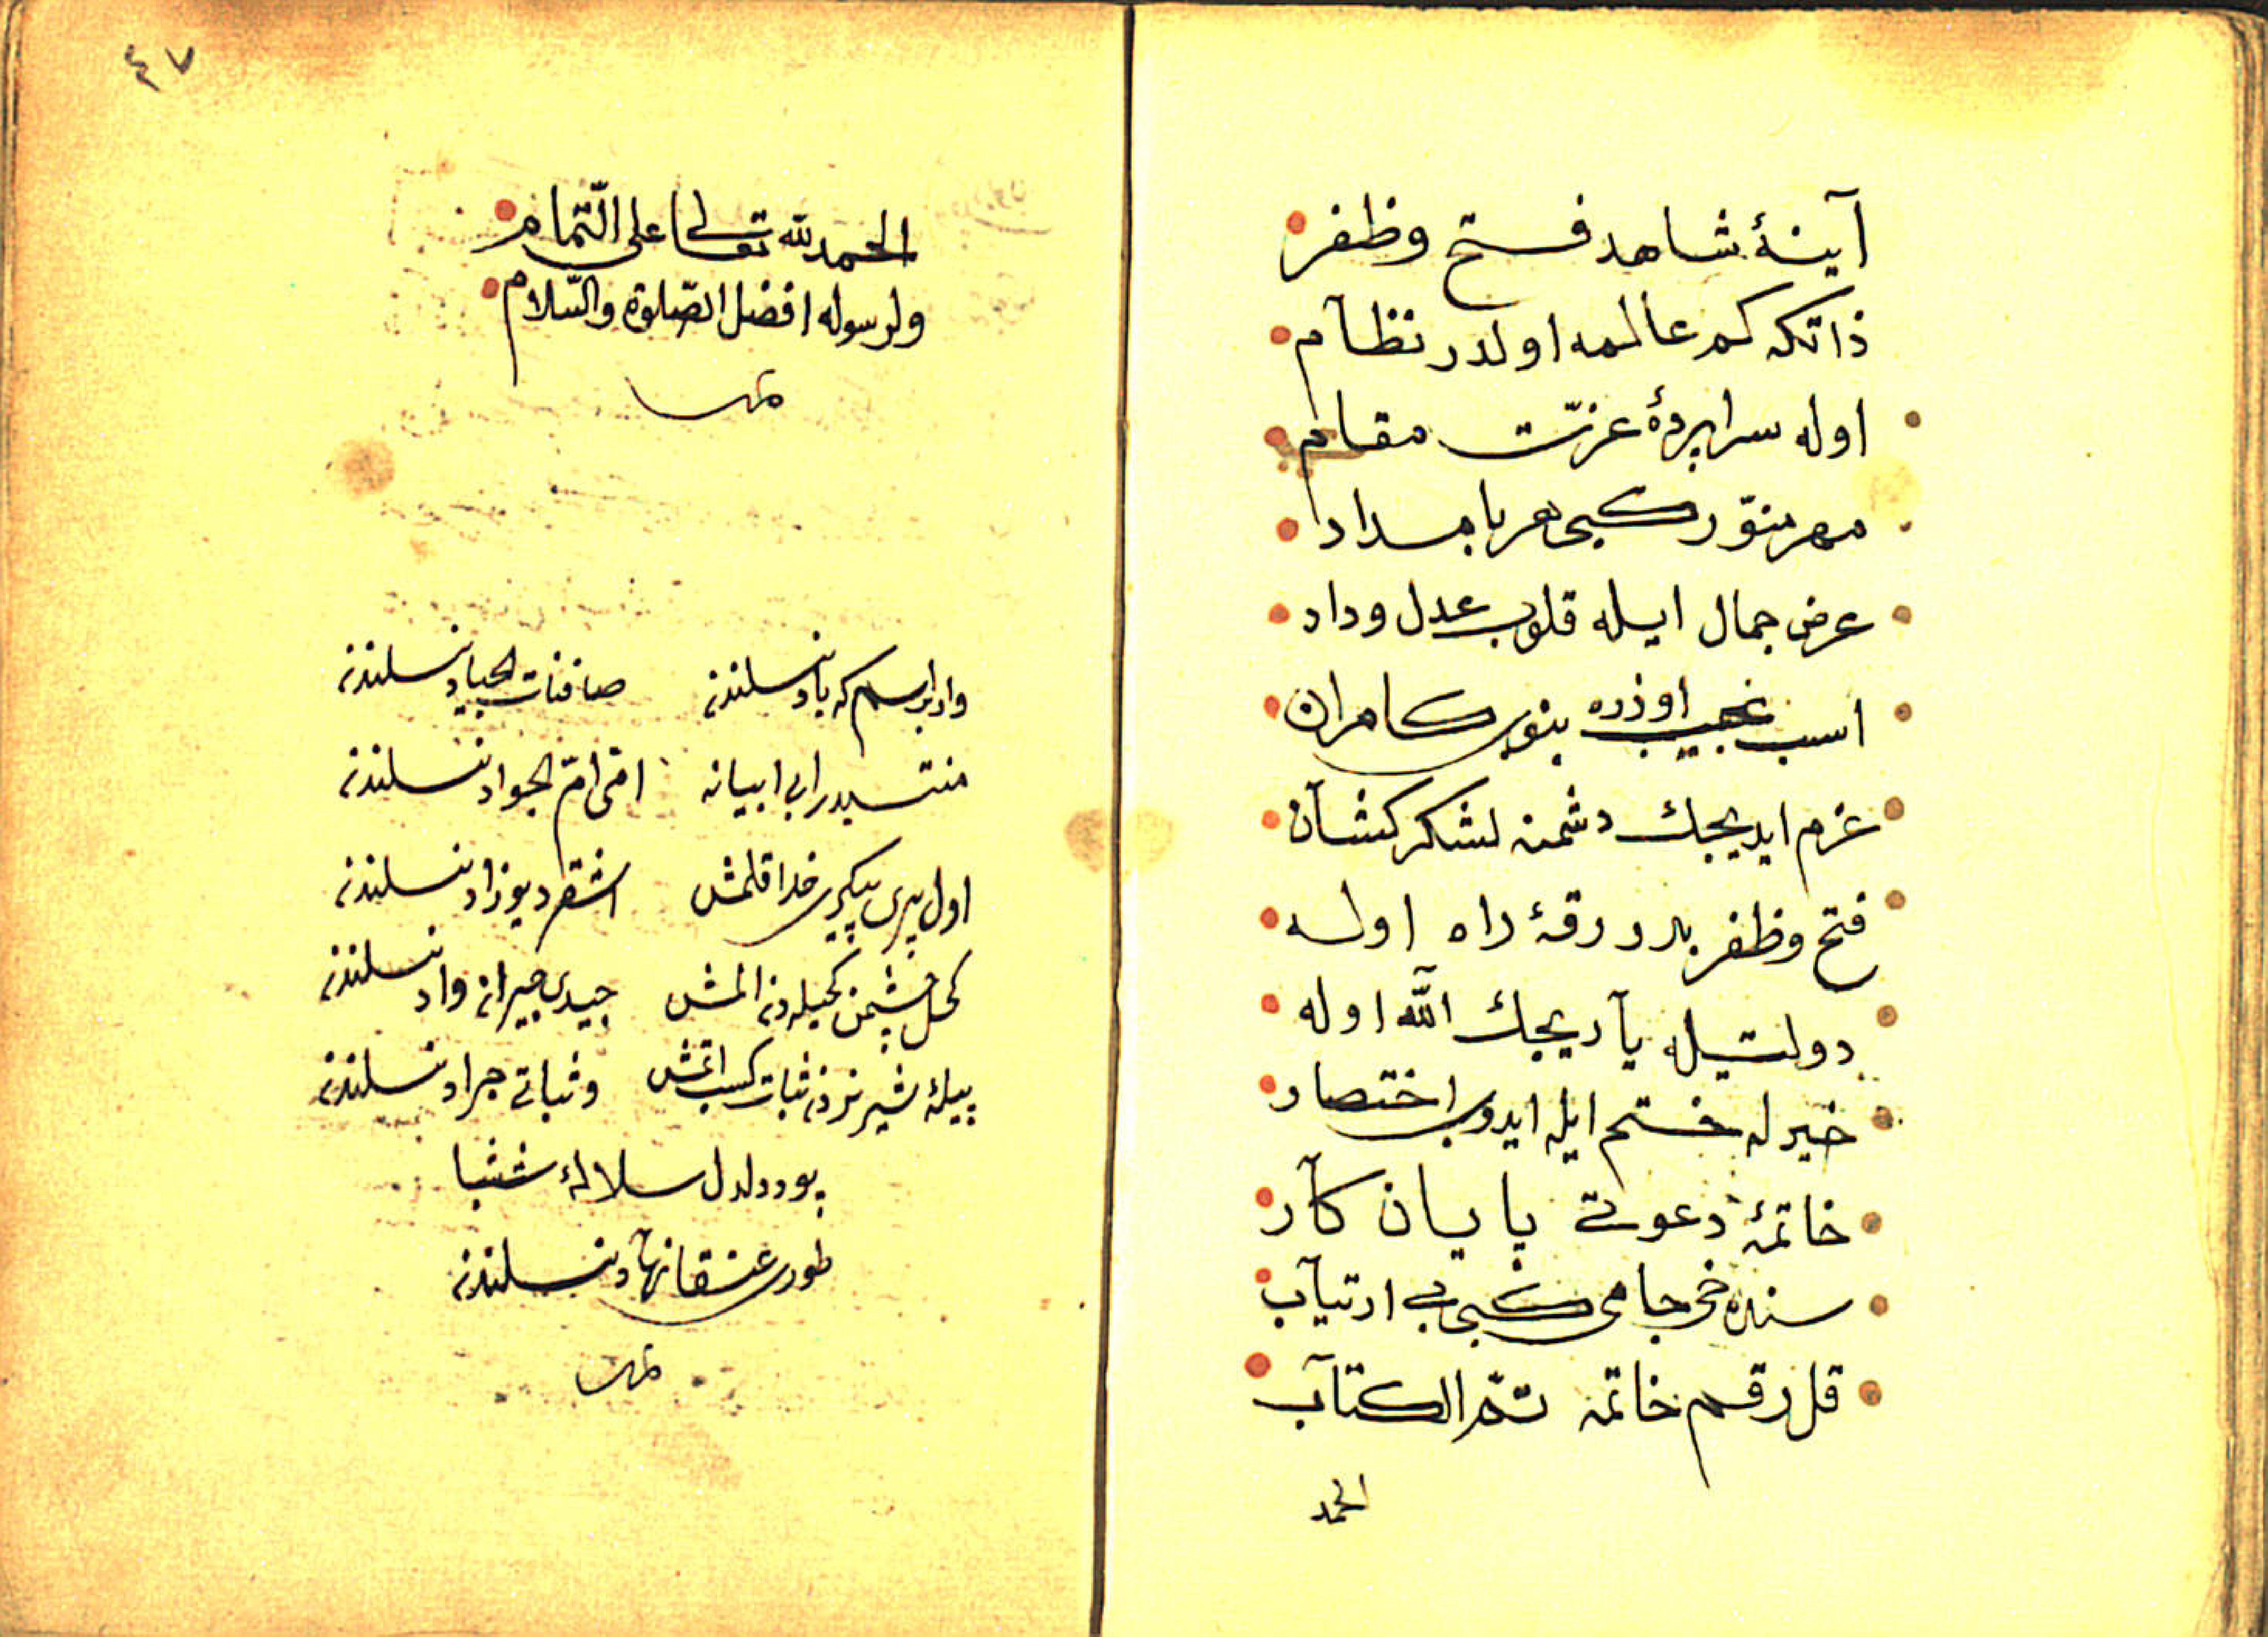 آینۀ شاهد فتح وظفر
ذاتکه کم عالمه اولدر نظآم
اوله سراپردۀ عزّت مقام
مهر منوّر کبی هر بامداد
عرض جمال ایله قلوب عدل وداد
اسب نجیب اوزره بنوب کامران
عزم ایدیجك دشمنه لشکر کشآن
فتح وظفر بدرقۀ راه اوله
دولتیله یآریجك اللّه اوله
خیرله ختم ایله ایدوب اختصار
خاتمۀ دعوتی پایان کآر
سنده خی جامی کبی بی ارتیآب
قل رقم خاتمه تمّ الکتآب
الحمد
٤٧
الحمد لله تعالی علی التّمام
ولرسوله افضل الصّلوة والسّلام
تمت
وار بر اسم که باد نسلندن صافنات الجیاد نسلندن
منتسبدر ابی ابیانه امّی امّ الجواد نسلندن
اول پری پیکری خدا قلمش اشقر دیوزاد نسلندن
کحل چشمن کحیله دن المش جیدی جیران واد نسلندن
پیلۀ شیر نردن ثبات کسب اتمش وثباتی جراد نسلندن
یورر دلدل سلالۀ شتبا
طوری عنقا نهآد نسلندن
تمت